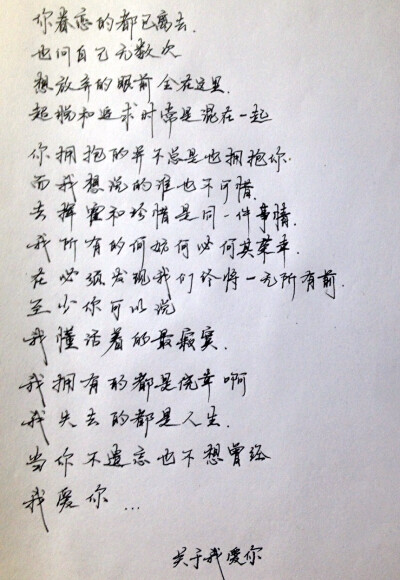 你眷恋的都已离去
也问自己无数次
想放弃的眼前全在这里
超脱和追求时常是混在一起
你拥抱的并不总是也拥抱你.
而我想说的谁也不可惜.
去挥霍和珍惜是同一件事情.
我所有的何妨何必何其荣幸.
在必须发现我们终将一无所有前.
至少你可以说
我懂活着的最寂寞.
我拥有的都是侥幸啊
我失去的都是人生.
当你不遗忘也不想曾经
我爱你...
关于我爱你